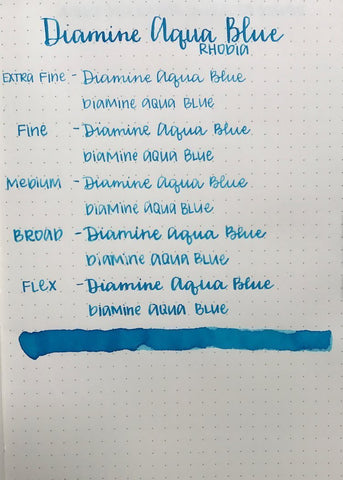 Diamine Aqua Blue
RHODIA
EXTRA FINE - Diamine Aqua Blue
DIAMINE AQUA BLUE
FINE - Diamine Aqua Blue
DIAMINE AQUA BLUE
MEDIUM - Diamine Aqua Blue
DIAMINE AQUA BLUE
BROAD - Diamine Aqua Blue
DIAMINE AQUA BLUE
FLEX - Diamine Aqua Blue
DIAMINE AQUA BLUE